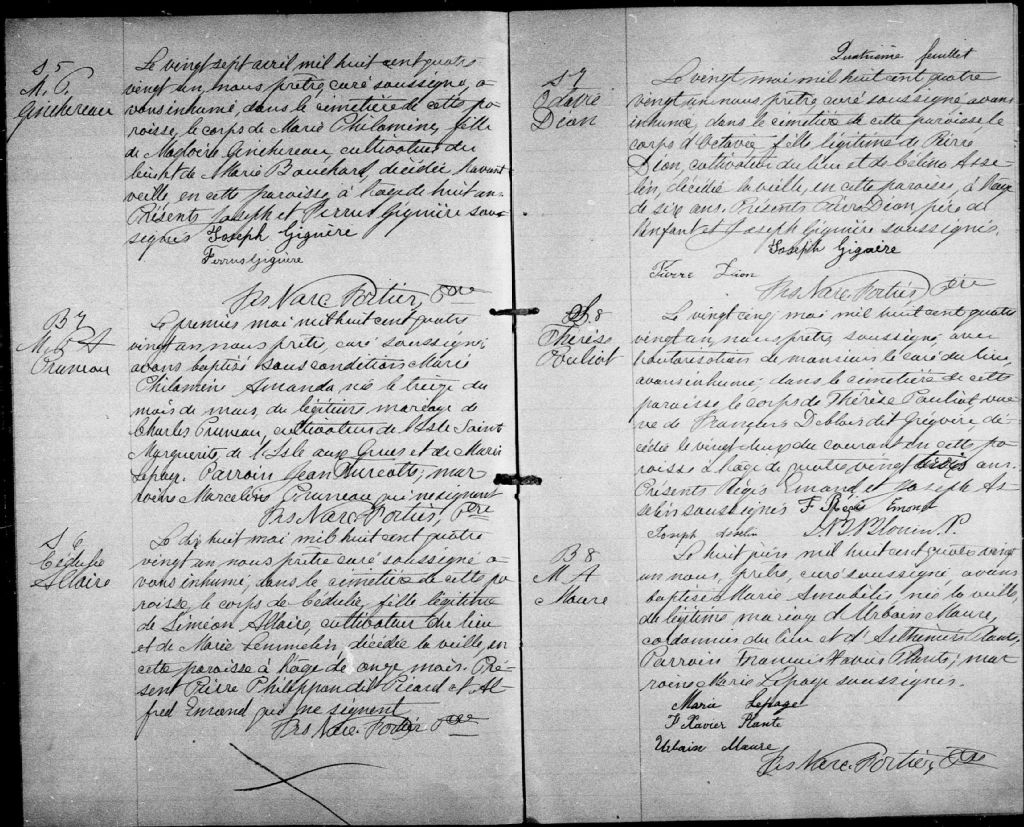 S 5
M. P.
Guichereau
Le vingt sept avril mil huit cent quatre
vingt un, nous prêtre, curé soussigné, a
vons inhumé, dans le cimetière de cette pa
roisse, le corps de Marie Philamine, fille
de Magloire Guichereau, cultivateur du
lieu et de Marie Bouchard, décédée l'avant
veille, en cette paroisse, à l'age de huit ans
Présents Joseph et Pierre Giguière sous-
signés Joseph Giguère
Pierre Giguère
Frs Narc. Fortier, Ptre
B 7
M. P. A
Pruneau
Le premier mai mil huit cent quatre
vingt un, nous prêtre, curé soussigné
avons baptisé sous condition Marie
Philamine Amanda née le treize du
mois de mars, du légitime mariage de
Charles Pruneau, cultivateur de l'Isle Sainte
Marguerite, de l'Isle aux Grues et de Marie
Lepage. Parrain Jean Turcotte; mar
raine Marceline Pruneau qui ne signent
Frs Narc. Fortier, Ptre
S 6
Cédulie
Allaire
Le dix huit mai mil huit cent quatre
vingt un, nous prêtre curé soussigné a
vons inhumé, dans le cimetière de cette pa
roisse, le corps de Cédulie, fille légitime
de Siméon Allaire, cultivateur du lieu
et de Marie Lemmelin, décédée la veille, en
cette paroisse à l'âge de onze mois. Pré
sent Pierre Philippon dit Picard et Al
fred Emond qui ne signent
Frs Narc. Fortier Ptre
Quatrième feuillet
S 7
Octavie
Dion
Le vingt mai mil huit cent quatre
vingt un nous prêtre curé soussigné avons
inhumé, dans le cimetière de cette paroisse le
corps d'Octavie fille légitime de Pierre
Dion, cultivateur du lieu et de Célina Asse
lin, décédée la veille, en cette paroisse, à l'âge
de six ans. Présents Pierre Dion, père de
l'enfant et Joseph Giguière soussignés.
Joseph Giguère
Pierre Dion
Frs Narc. Fortier, Ptre
S. 8
Thérèse
Pouliot
Le vingt cinq mai mil huit cent quatre
vingt un, nous prêtre, soussigné, avec
l'autorisation de monsieur le curé du lieu,
avons inhumé, dans le cimetière de cette
paroisse, le corps de Thérèse Pouliot, veu
ve de François Deblois dit Grégoire, dé
cédée le vingt deux du courant en cette pa
roisse à l'age de quatre vingt trois ans.
Présents Régis Emond et Joseph As
selin soussignés F Régis Émond
Joseph Asselin
Blouin P.
B 8
M A
Maure
Le huit juin mil huit cent quatre vingt
un nous, prêtre, curé soussigné, avons
baptisé Marie Amabilis née la veille,
du légitime mariage d'Urbain Maure,
cordonnier du lieu et d'Arthémise Plante,
Parrain Francois Xavier Plante; mar
raine Marie Lepage soussignés.
Marie Lepage
F Xavier Plante
Urbain Maure
Frs Narc. Fortier, Ptre